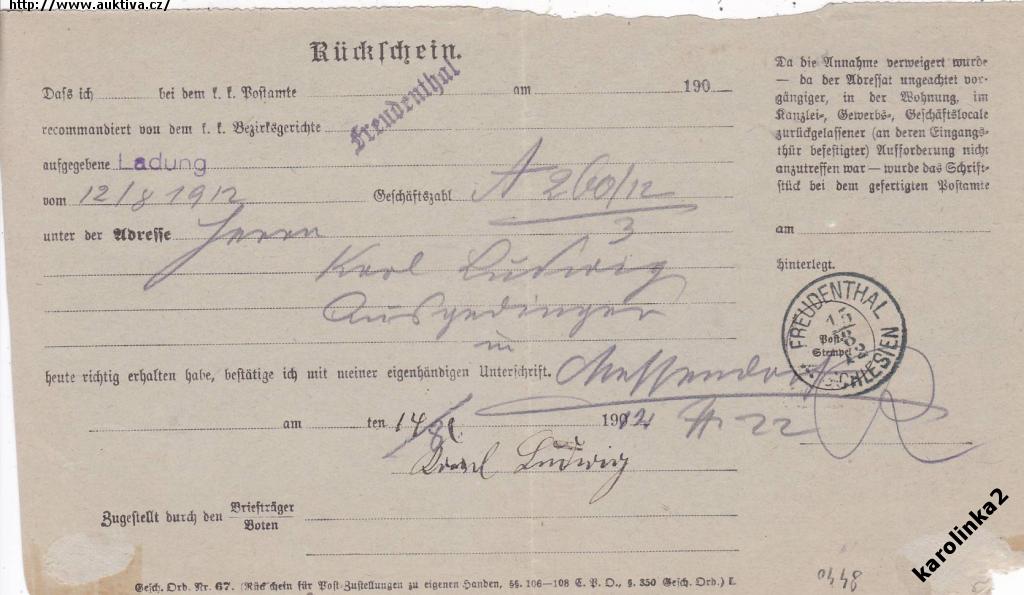 http://www.auktiva.cz/
Rückschein.
Freudenthal
Daß ich bei dem k. k. Postamte am 190
recommandiert von dem k. k. Bezirksgerichte
aufgegebene Ladung
vom 12/8 1912 Geschäftszahl A 260/12
3
unter der Adresse Herrn
Karl Ludwig
Ausgedinger
in
heute richtig erhalten habe, bestätige ich mit meiner eigenhändigen Unterschrift. Messendorf
am ten 14/8 1912 H. 22
Karl Ludwig
Zugestellt durch den Briefträger
Boten
Gesch. Ord. Nr. 67. (Rückschein für Post-Zustellungen zu eigenen Handen, §§. 106—108 C. P. O., §. 350 Gesch. Ord.)
Da die Annahme verweigert wurde
— da der Adressat ungeachtet vor-
gängiger, in der Wohnung, im
Kanzlei-, Gewerbs-, Geschäftslocale
zurückgelassener (an deren Eingangs-
thür befestigter) Aufforderung nicht
anzutreffen war — wurde das Schrift-
stück bei dem gefertigten Postamte
am
hinterlegt.
FREUDENTHAL
Post-
Stempel
SCHLESIEN
karolinka2